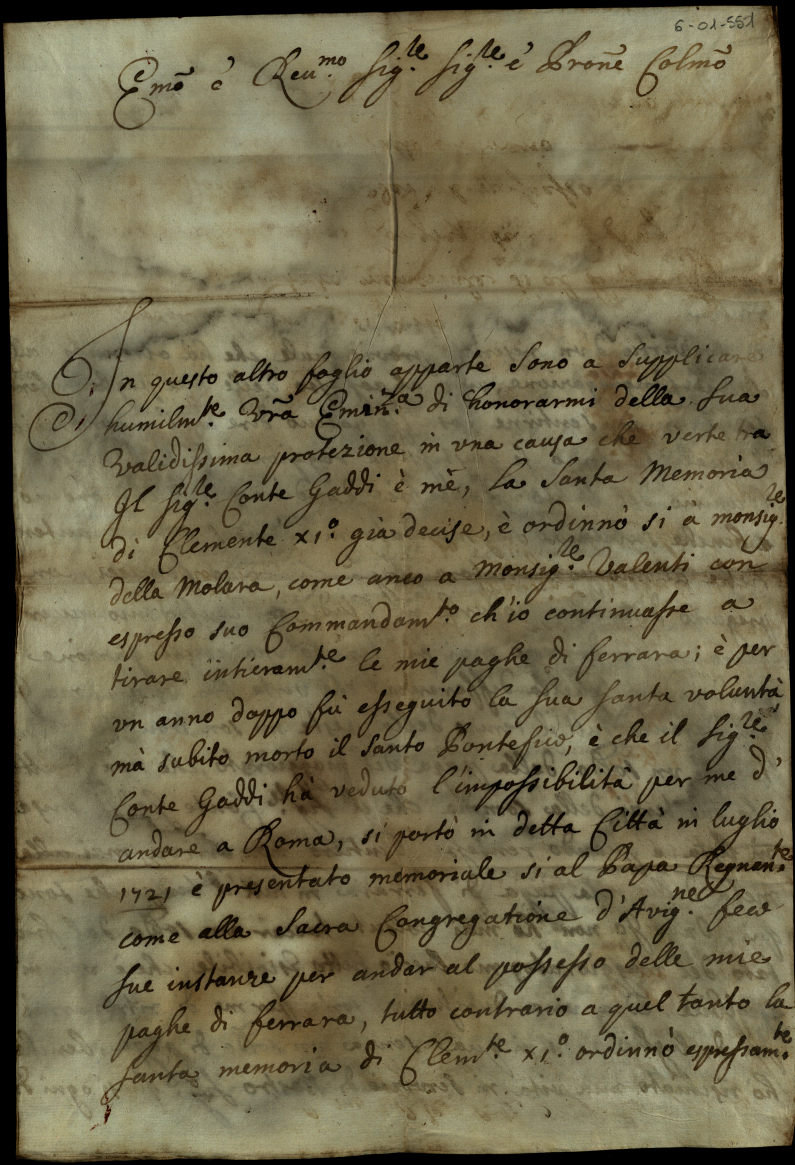 6-01-551
Emõ è Reu.mo Sig.re Sig.re è Pronẽ Colmõ
In questo altro foglio apparte sono a supplicare
humilm.te Vrã Emin.za di honorarmi della sua
Validissima protezione in vna causa che verte tra
Il Sig.re Conte Gaddi è mè, la Santa Memoria
di Clemente X1.º già decise, è ordinnò si à monsig.re
della Molara, come anco a Monsig.re Valenti con
espresso suo Commandam.to ch'io continuasse a
tirare intieram.te le mie paghe di ferrara; è per
vn anno doppo fù esseguito la sua santa voluntà
mà subito morto il Santo Pontefice, è che il Sig.re
Conte Gaddi hà veduto l'impossibilità per me d'
andare a Roma, si portò in detta Città in luglio
1721 è presentato memoriale si al Papa Regnan.te
come alla Sacra Congregatione d'Avig.ne fece
sue instanze per andar al possesso delle mie
paghe di ferrara, tutto contrario a quel tanto la
santa memoria di Clem.te X1.º ordinnò espressam.te